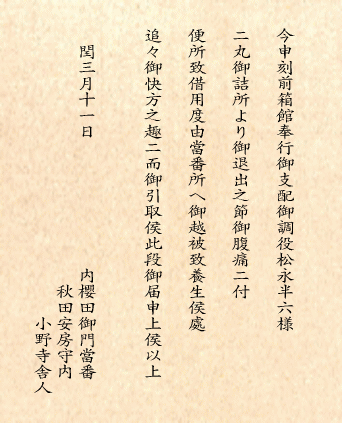 今申刻前箱館奉行御支配御調役松永半六様
二丸御詰所より御退出之節御腹痛ニ付
便所致借用度由當番所へ御越被致養生侯處
追々御快方之趣ニ而御引取侯此段御届申上侯以上
閏三月十一日
内櫻田御門當番
秋田安房守内
小野寺舎人